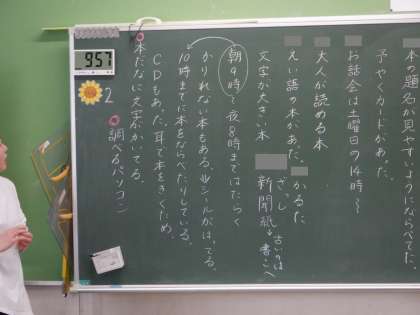 本の題名が見やすいようにならべてた
予やくカードがあった。
お話会は土曜日の14時〜
大人が読める本
えい語の本があった。 かるた
文字が大きい本 ざっし 新聞紙→古いのは書こへ
朝9時〜夜8時まではたらく
かりれない本もある。シールがはってる。
10時までに本をならべたりしている。
CDもあった。耳で本をきくため。
本だなに文字がかいてる。
調べるパソコン
2
9:57